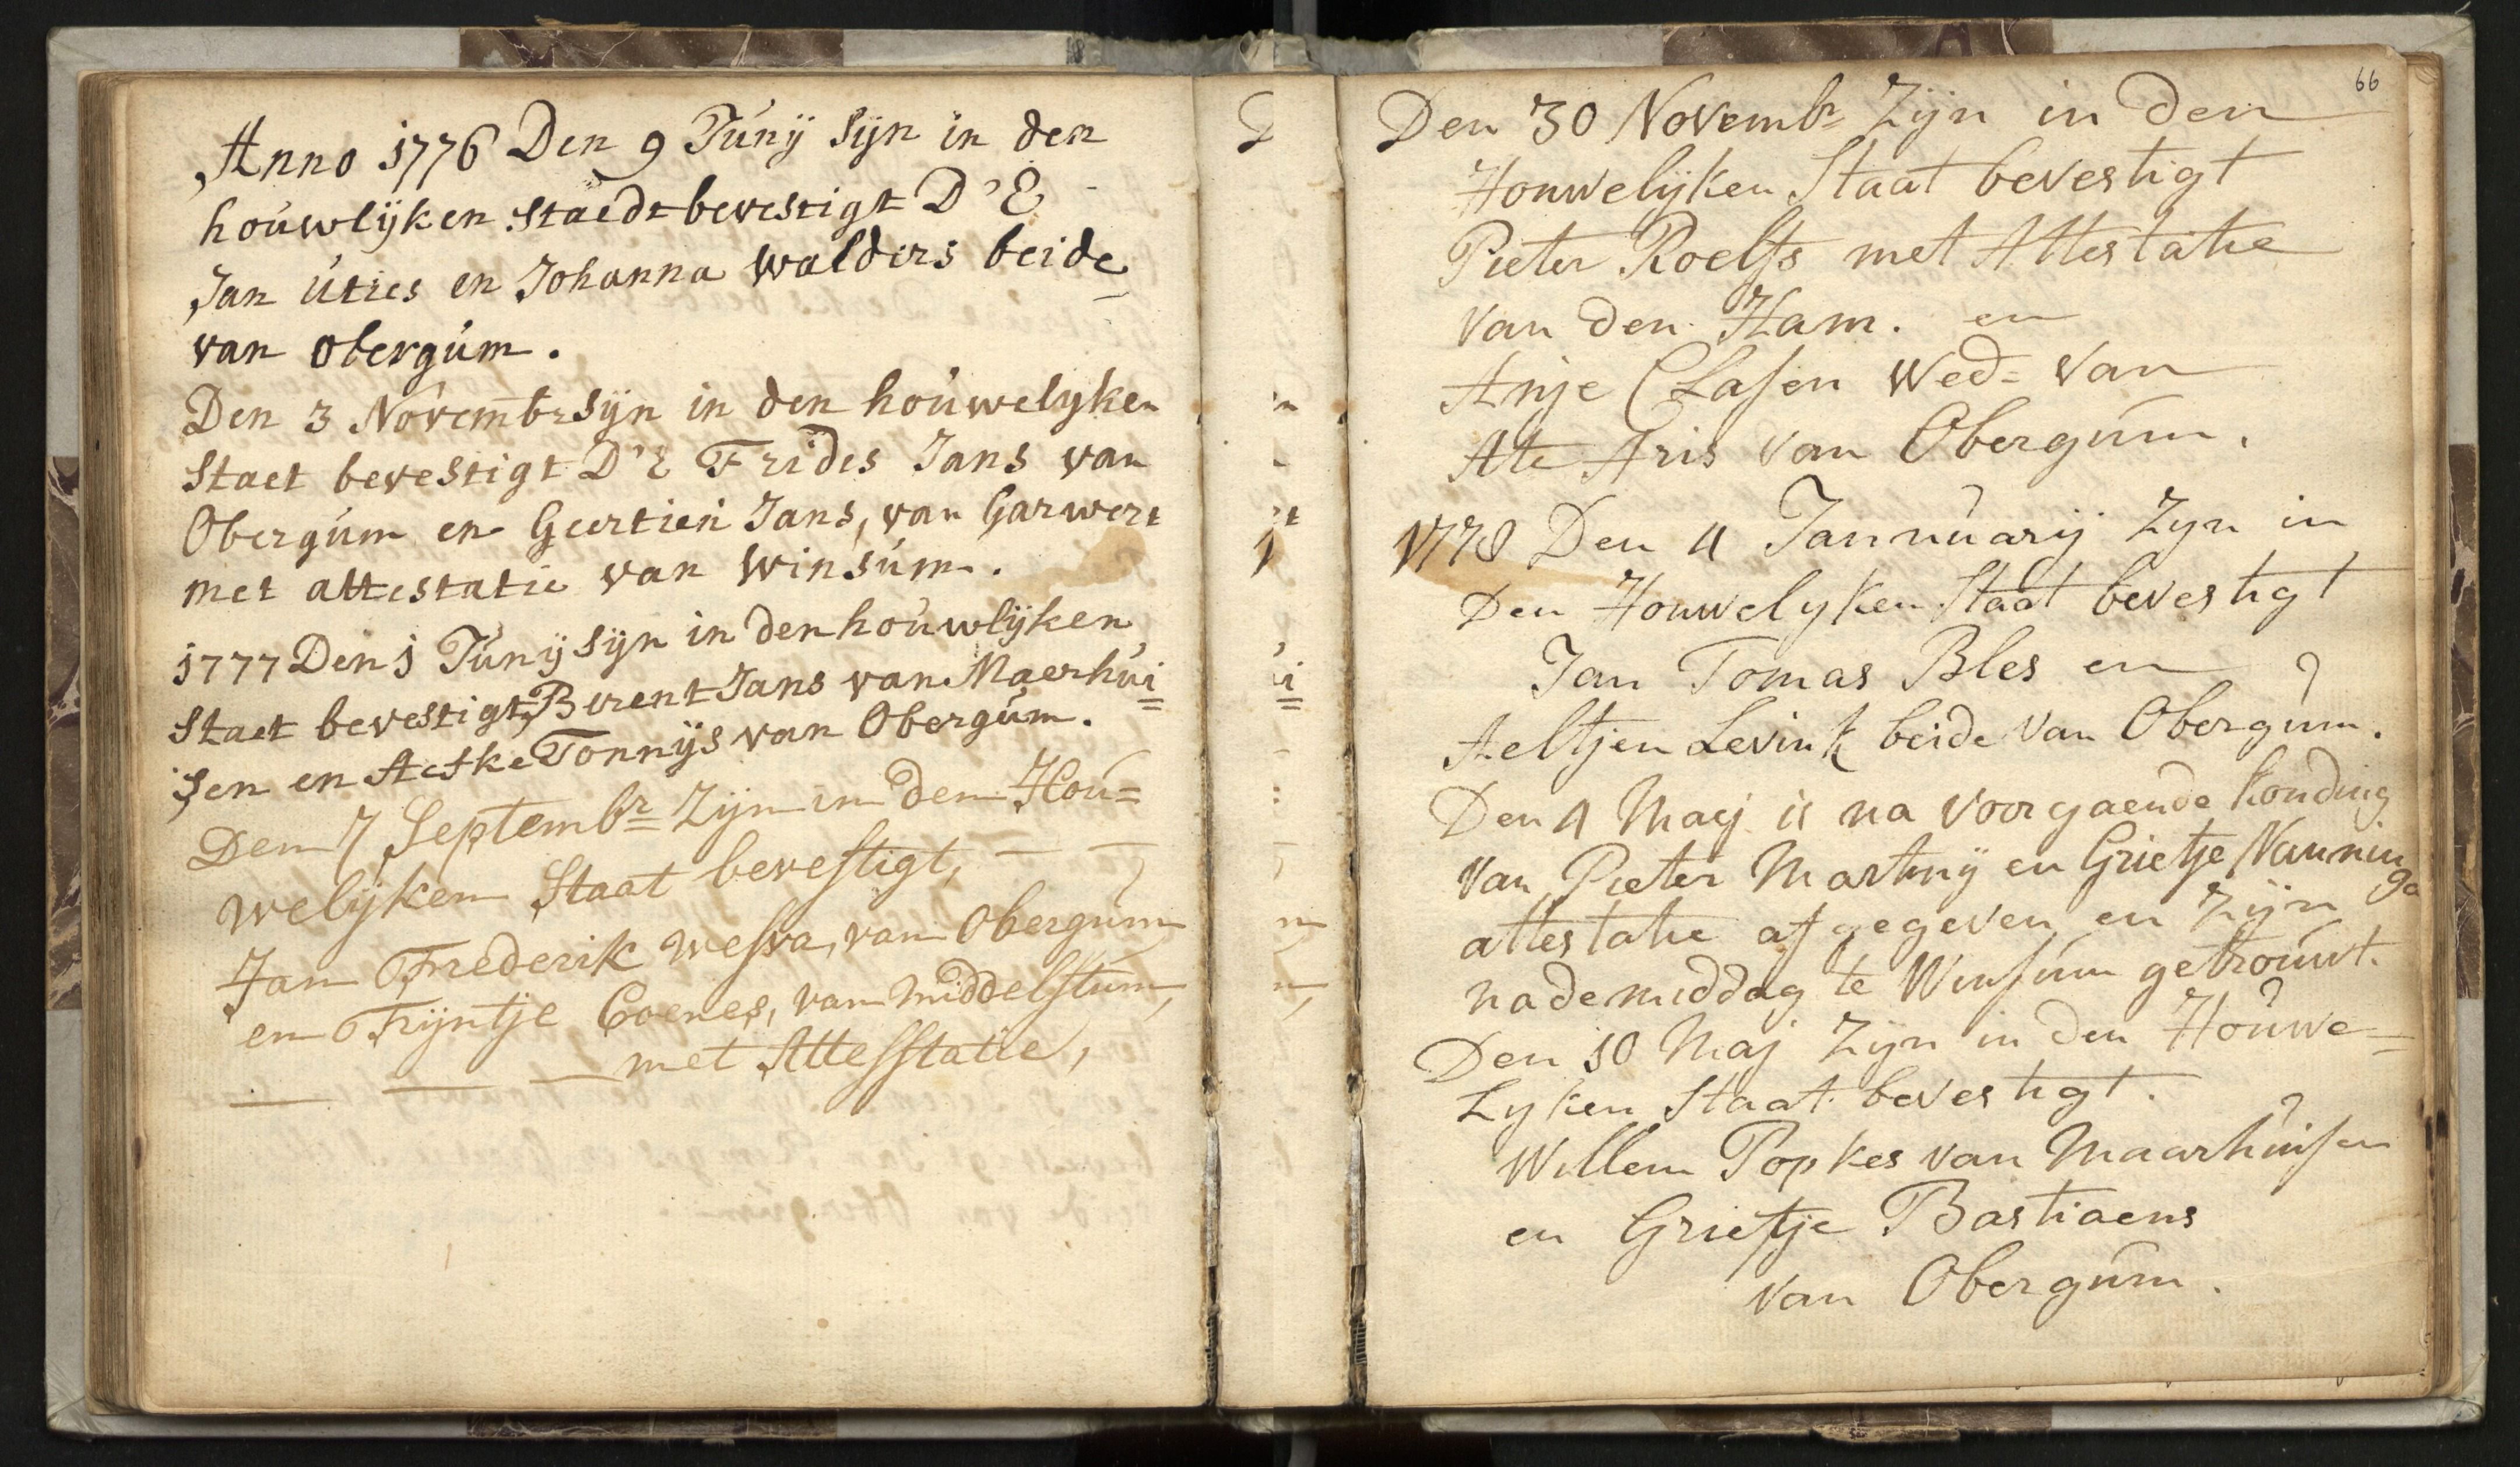 Anno 1776 Den 9 Júnÿ sÿn in den
hoúwlÿken staedt bevestigt D'E
Jan úties en Johanna walders beide
van obergúm.
Den 3 Novembr sÿn in den hoúwelyken
staet bevestigt D'E Frides Jans van
Obergúm en Geertien Jans, van Garwert
met attestatie van Winsúm.
1777 Den 1 Júnÿ sÿn in den hoúwlÿken
staet bevestigt, Berent Jans van Maerhúi=
sen en Aefke Tonnÿs van Obergúm.
Den 7 Septembr Zijn in den Hoú=
welÿken Staat bevestigt,
Jan Frederik Wessra, van Obergúm
en Trÿntje Coenes, van Middelstúm,
met Attesstatie,
66
Den 30 Novembr Zijn in den
Houwelijken Staat bevestigt
Pieter Roelfs met Attestatie
van den Ham. en
Anje Clasen Wed= van
Ate Aris van Obergúm.
1778 Den 4 Jannúarij Zyn in
Den Houwelyken Staat bevestigt
Jan Tomas Bles en
Aeltjen Levink beide van Obergúm.
Den 4 Maij is na voorgaende konding
van Pieter Martinÿ en Grietje Nanninga
attestatie afgegeven en Zijn
nademiddag te Winsum getroúwt.
Den 10 Maj Zijn in den Hoúwe=
Lyken Staat bevestigt.
Willem Popkes van Maarhúisen
en Grietje Bastiaens
van Obergúm.